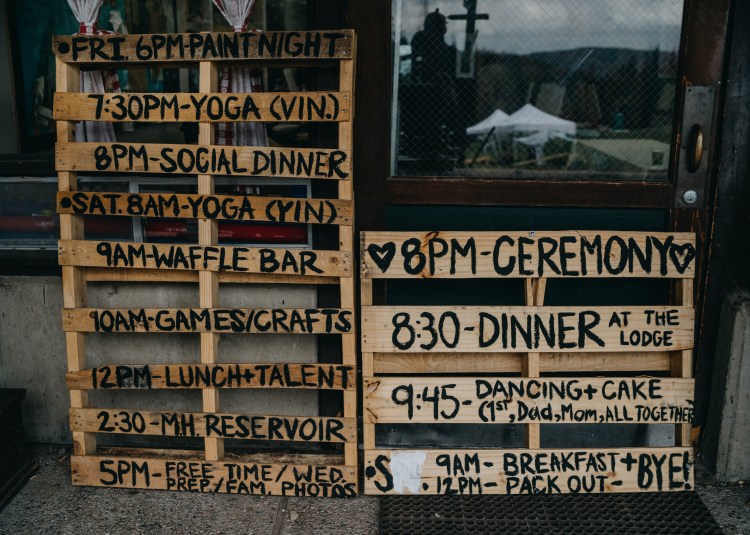 •FRI. 6PM-PAINT NIGHT
7:30PM-YOGA (VIN.)
8PM-SOCIAL DINNER
•SAT. 8AM-YOGA (YIN)
9AM-WAFFLE BAR
10AM-GAMES/CRAFTS
12PM-LUNCH+TALENT
2:30-M.H. RESERVOIR
5PM-FREE TIME/WED.
PREP/FAM. PHOTOS
♥8PM-CEREMONY♥
8:30-DINNER AT THE
LODGE
9:45-DANCING+CAKE
(1st, Dad, Mom, ALL TOGETHER
•S 9AM-BREAKFAST+BYE!
•12PM-PACK OUT-